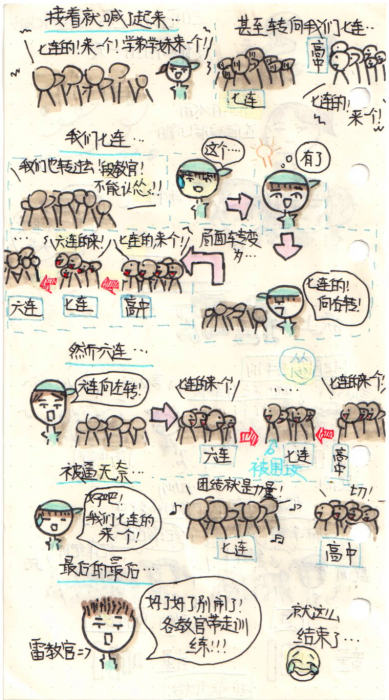 接着就喊了起来…
七连的!来一个!学弟学妹来一个!
甚至转向我们七连…
七连
高中
七连的!
来一个!
我们七连…
我们也转过去!段教官!
不能认怂!!
这个…
有了
六连的来!
七连的来个!
六连
七连
高中
局面转变
为…
七连的!
向右转!
然而六连…
怂
六连向左转!
七连的来个!
....
七连的来个!
六连
七连
高中
被围攻
被逼无奈…
好吧!
我们七连的
来一个!
团结就是力量!
七连
切!
高中
最后的最后…
雷教官=>
好了好了别闹了!
各教官带走训
练!!!
就这么
结束了…